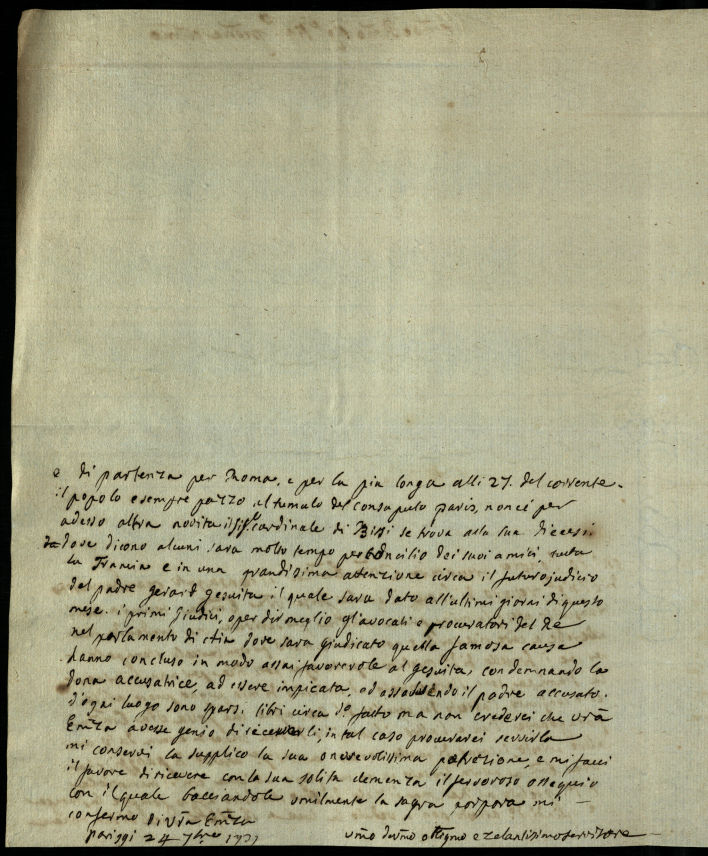 e di partenza per Roma, e per la piu longa alli 27. del corrente.
il popolo e sempre pazzo al tumulo del consaputo paris, non ci è per
adesso altra novita il sigr cardinale di Bissi se trova alla sua diecesi
dose dicono alcuni sara molto tempo per consilio dei suoi amici, tutta
la Francia e in una grandissima attenzione circa il futuro judicio
del padre gerard gesuita il quale sara dato all'ultimi giorni di questo
mese. i primi giudici, o per dir meglio gl'avocati o procuratori del Re
nel parlamento di dove sara giudicato questa famosa causa
hanno concluso in modo assai favorevole al gesuita, condemnando la
dona accusatrice, ad essere impicata, ed assolvendo il padre accusato.
d'ogni luogo sono sparsi libri circa do fatto ma non crederei che vra
Emza avesse genio di riceverli, in tal caso procurarei servirla
mi conservi la supplico la sua onorevolissima protezione, e mi facci
il favore di ricevere con la sua solita clemenza il fervoroso ossequio
con il quale bacciandole umilmente la sagra porpora mi
confermo di vra Emza
pariggi 24 7bre 1731 umo devmo obbligmo e zelantissimo servitore